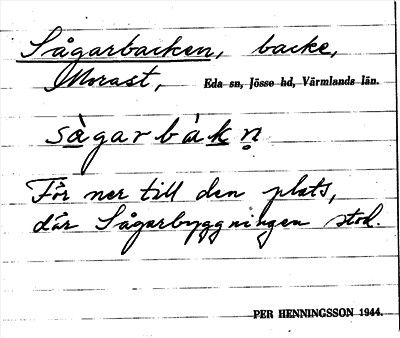 Sågarbacken, backe,
Morast, Eda sn, Jösse hd, Värmlands län.
sàgarbákn̥
För ner till den plats,
där Sågarbyggningen stod.
PER HENNINGSSON 1944.